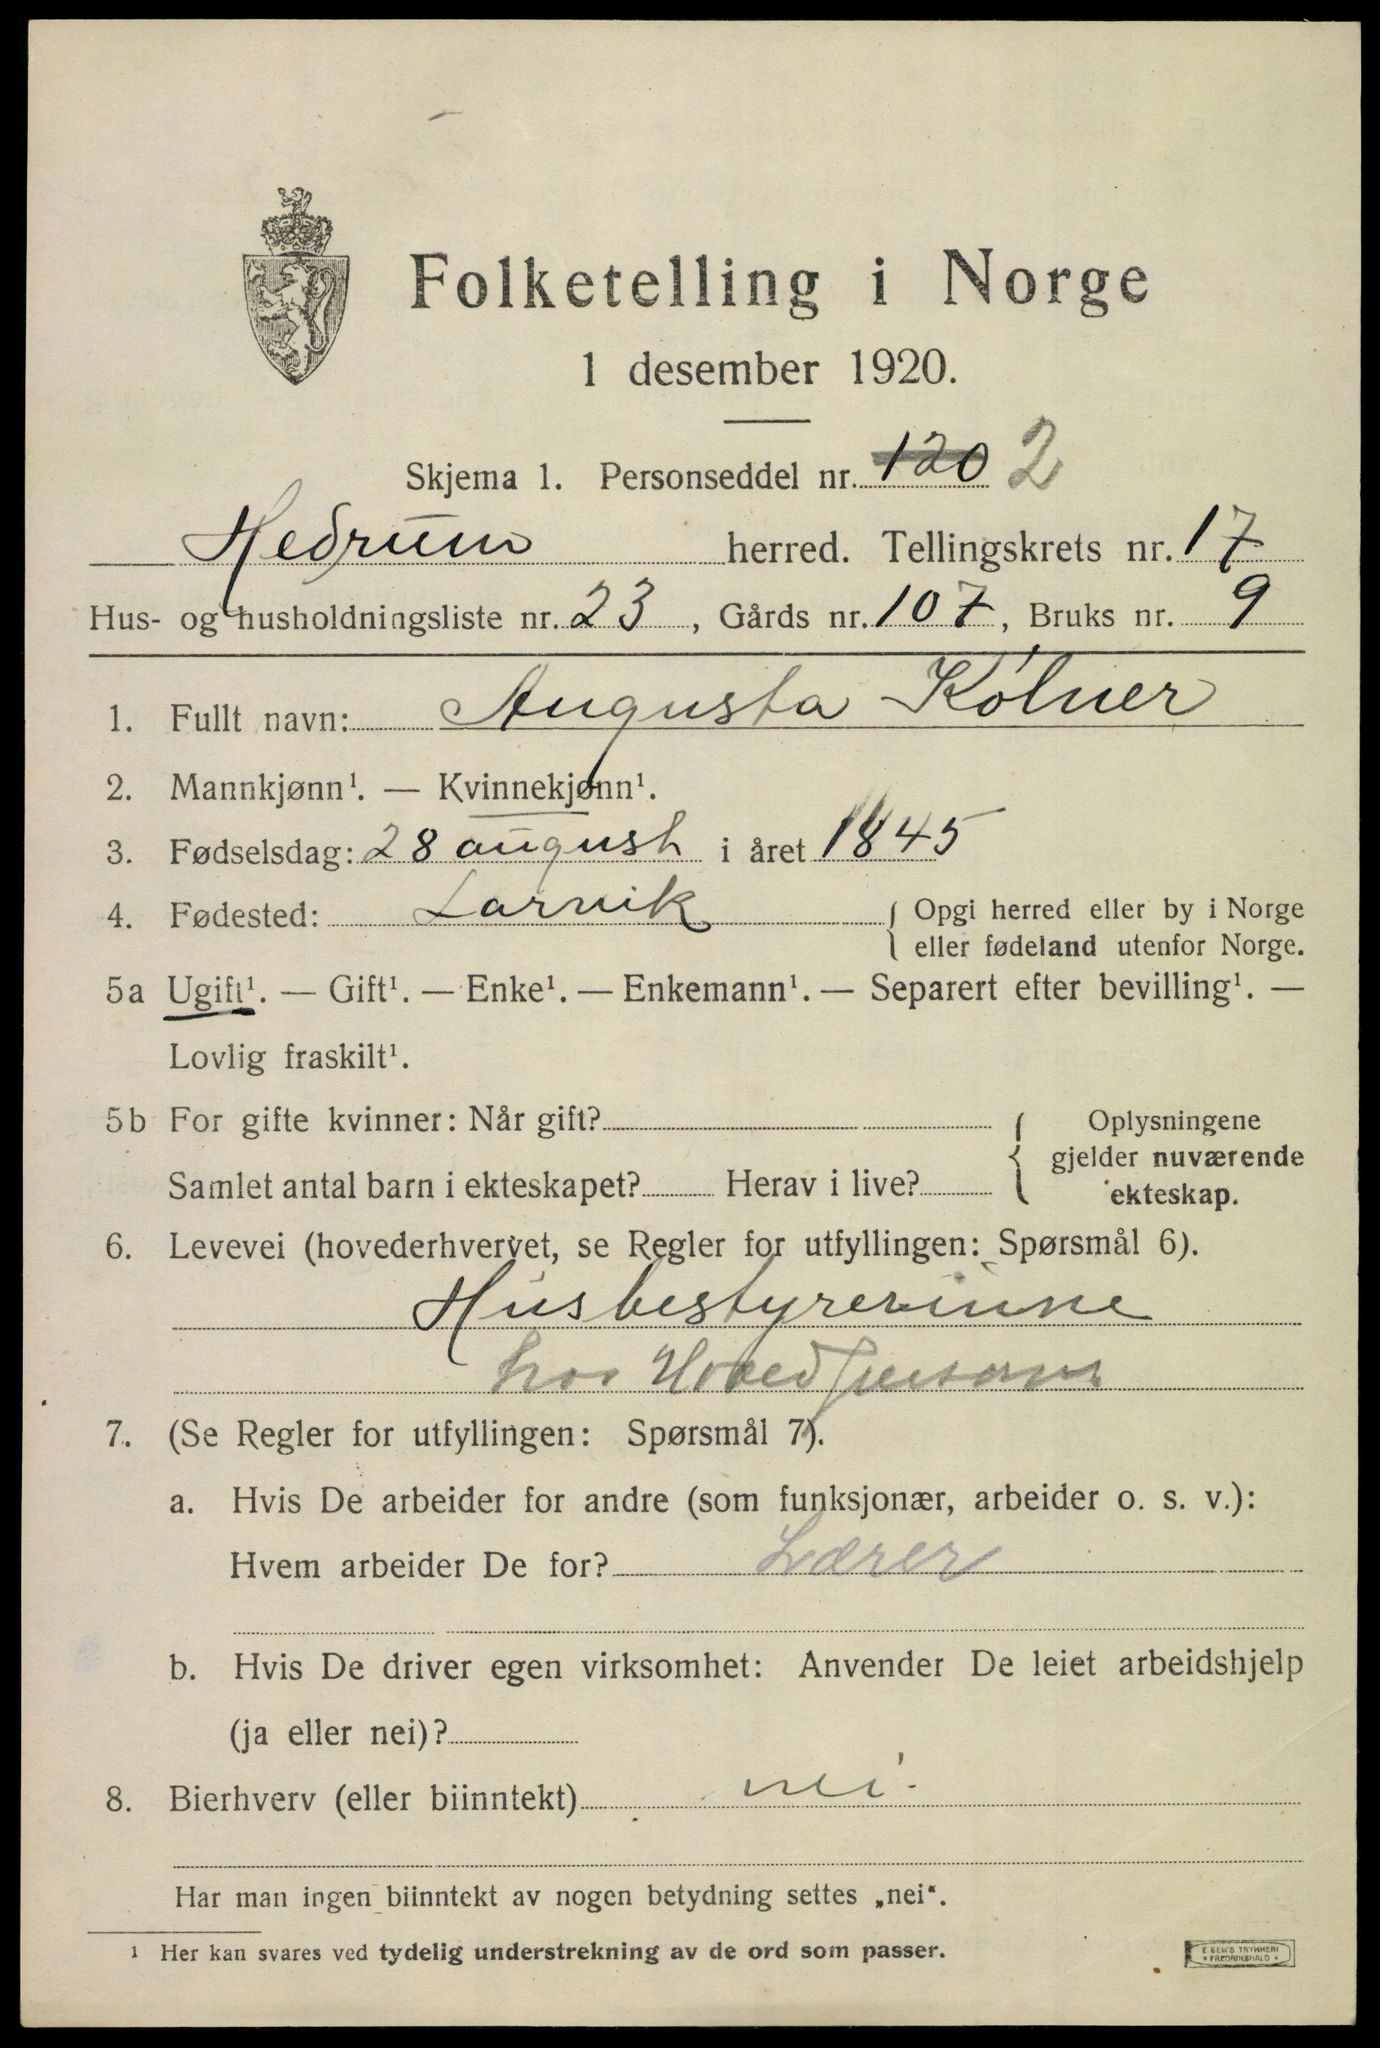 Folketelling i Norge
1 desember 1920.
Skjema 1. Personseddel nr. 120 2
Hedrum herred. Tellingskrets nr. 17
Hus- og husholdningsliste nr. 23, Gårds nr. 107, Bruks nr. 9
1. Fullt navn: Augusta Kólner
2. Mannkjønn¹. — Kvinnekjønn¹.
3. Fødselsdag: 28 august i året 1845
4. Fødested: Larvik { Opgi herred eller by i Norge
eller fødeland utenfor Norge.
5a Ugift¹. — Gift¹. — Enke¹. — Enkemann¹. — Separert efter bevilling¹. —
Lovlig fraskilt¹.
5b For gifte kvinner: Når gift? { Oplysningene
gjelder nuværende
Samlet antal barn i ekteskapet? Herav i live? ekteskap.
6. Levevei (hovederhvervet, se Regler for utfyllingen: Spørsmål 6).
Husbestyrerinne
hos Hovedperson
7. (Se Regler for utfyllingen: Spørsmål 7).
a. Hvis De arbeider for andre (som funksjonær, arbeider o. s. v.):
Hvem arbeider De for? Lærer
b. Hvis De driver egen virksomhet: Anvender De leiet arbeidshjelp
(ja eller nei)?
8. Bierhverv (eller biinntekt) nei
Har man ingen biinntekt av nogen betydning settes „nei“.
¹ Her kan svares ved tydelig understrekning av de ord som passer.
E SEM'S TRYKKERI
* FREDRIKSHALD *